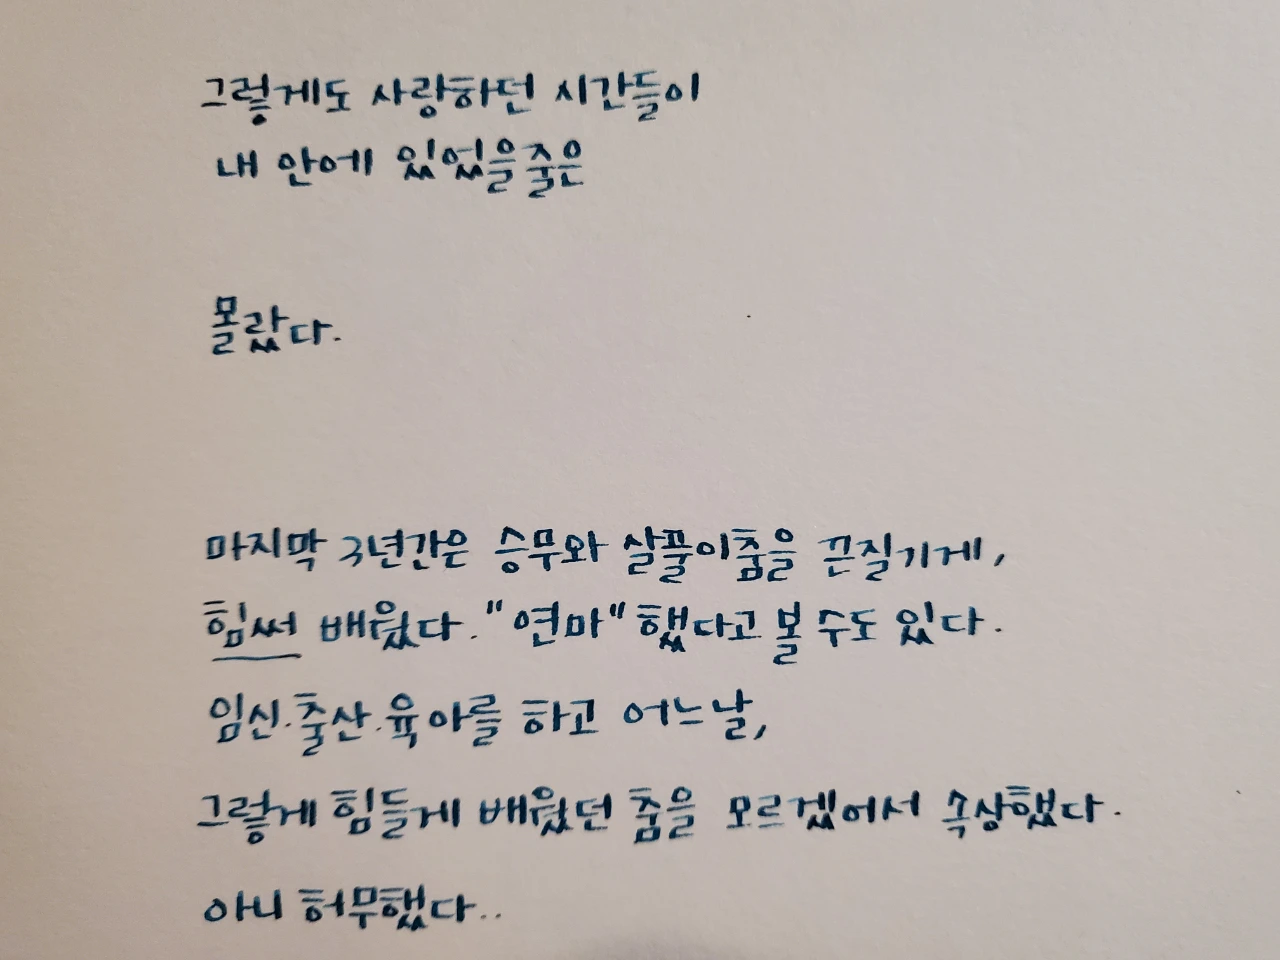 그렇게도 사랑하던 시간들이
내 안에 있었을줄은
몰랐다.
마지막 3년간은 승무와 살풀이춤을 끈질기게,
힘써 배웠다. "연마"했다고 볼 수도 있다.
임신.출산.육아를 하고 어느날,
그렇게 힘들게 배웠던 춤을 모르겠어서 속상했다.
아니 허무했다..